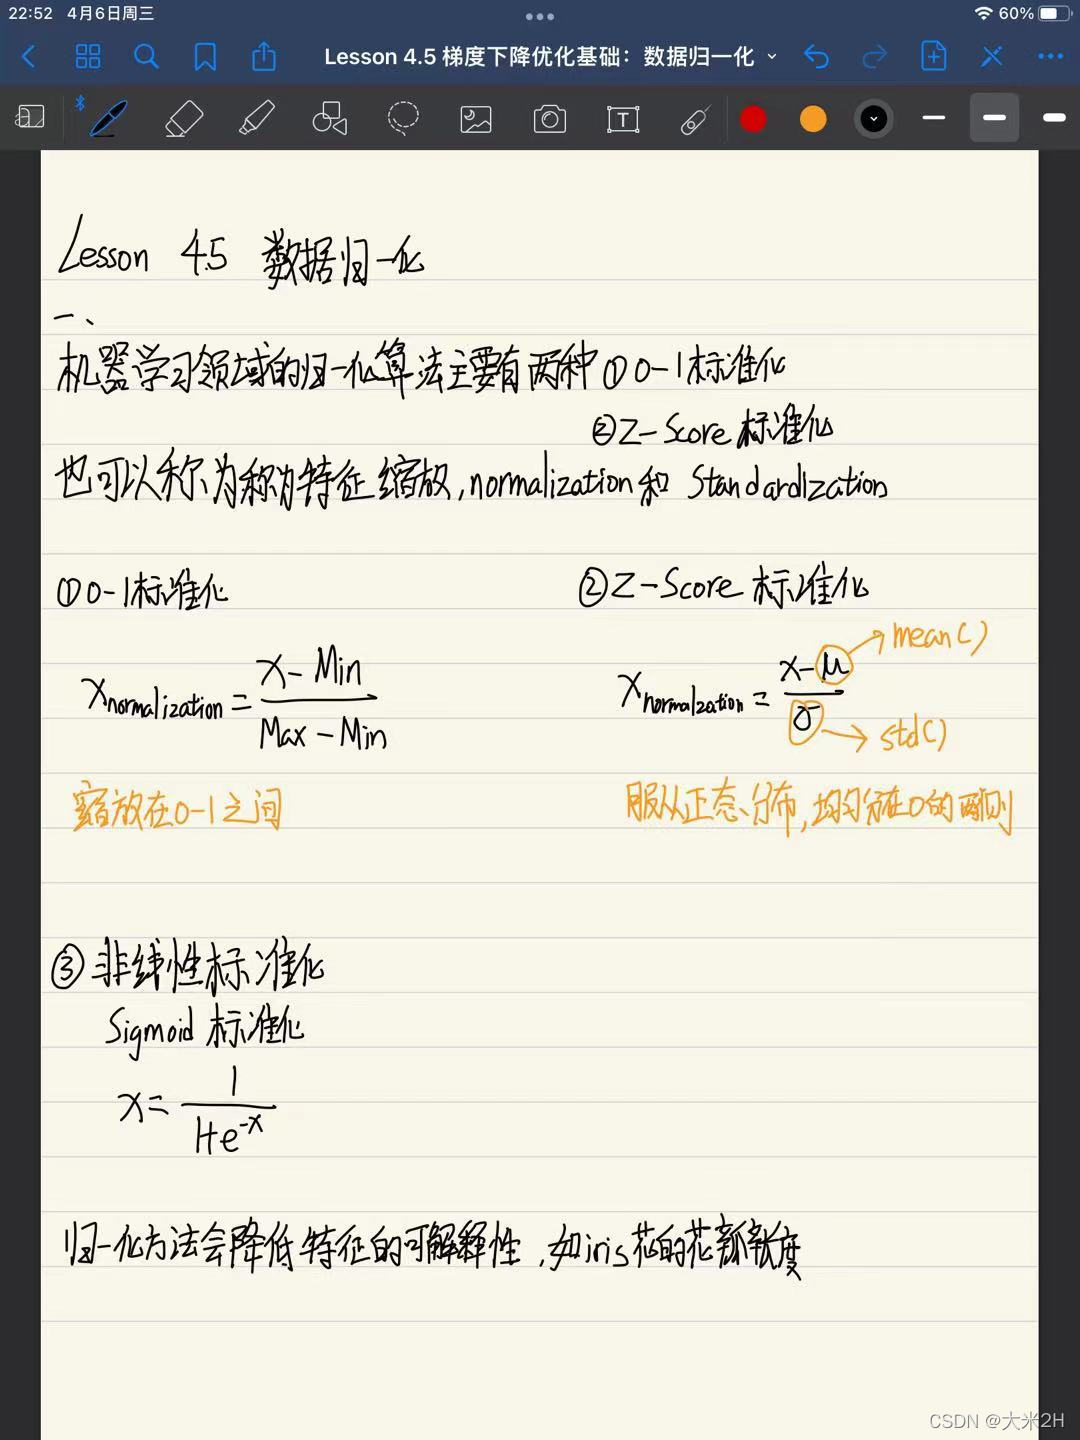 22:52 4月6日周三
60%
Lesson 4.5 梯度下降优化基础：数据归一化
Lesson 4.5 数据归一化
一、
机器学习领域的归一化算法主要有两种 ① 0-1标准化
② Z-Score 标准化
也可以称为称为特征缩放, normalization 和 Standardization
① 0-1标准化
x normalization = (x - Min) / (Max - Min)
缩放在0-1之间
② Z-Score 标准化
x normalzation = (x - μ) / σ
mean()
std()
服从正态分布, 均匀分在0的两侧
③ 非线性标准化
Sigmoid 标准化
x = 1 / (1+e^-x)
归一化方法会降低特征的可解释性, 如iris花的花瓣长度
CSDN @大米2H